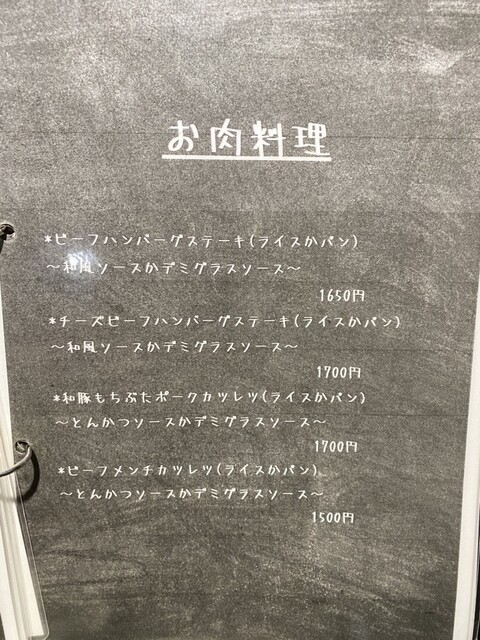 お肉料理
*ビーフハンバーグステーキ(ライスかパン)
～和風ソースかデミグラスソース～
1650円
*チーズビーフハンバーグステーキ(ライスかパン)
～和風ソースかデミグラスソース～
1700円
*和豚もちぶたポークカツレツ(ライスかパン)
～とんかつソースかデミグラスソース～
1700円
*ビーフメンチカツレツ(ライスかパン)
～とんかつソースかデミグラスソース～
1500円